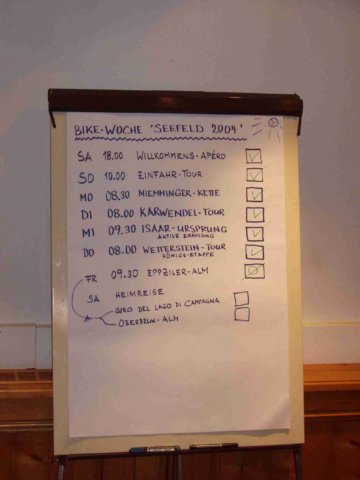 BIKE-WOCHE 'SEEFELD 2004'
SA 18.00 WILLKOMMENS-APÉRO
SO 10.00 EINFAHR-TOUR
MO 08.30 MIEMMINGER-KETTE
DI 08.00 KARWENDEL-TOUR
MI 09.30 ISAAR-URSPRUNG
AKTIVE ERHOLUNG
DO 08.00 WETTERSTEIN-TOUR
KÖNIGS-ETAPPE
FR 09.30 EPPZILER-ALM
SA HEIMREISE
GIRO DEL LAGO DI CAMPAGNA
OBERBRUN-ALM